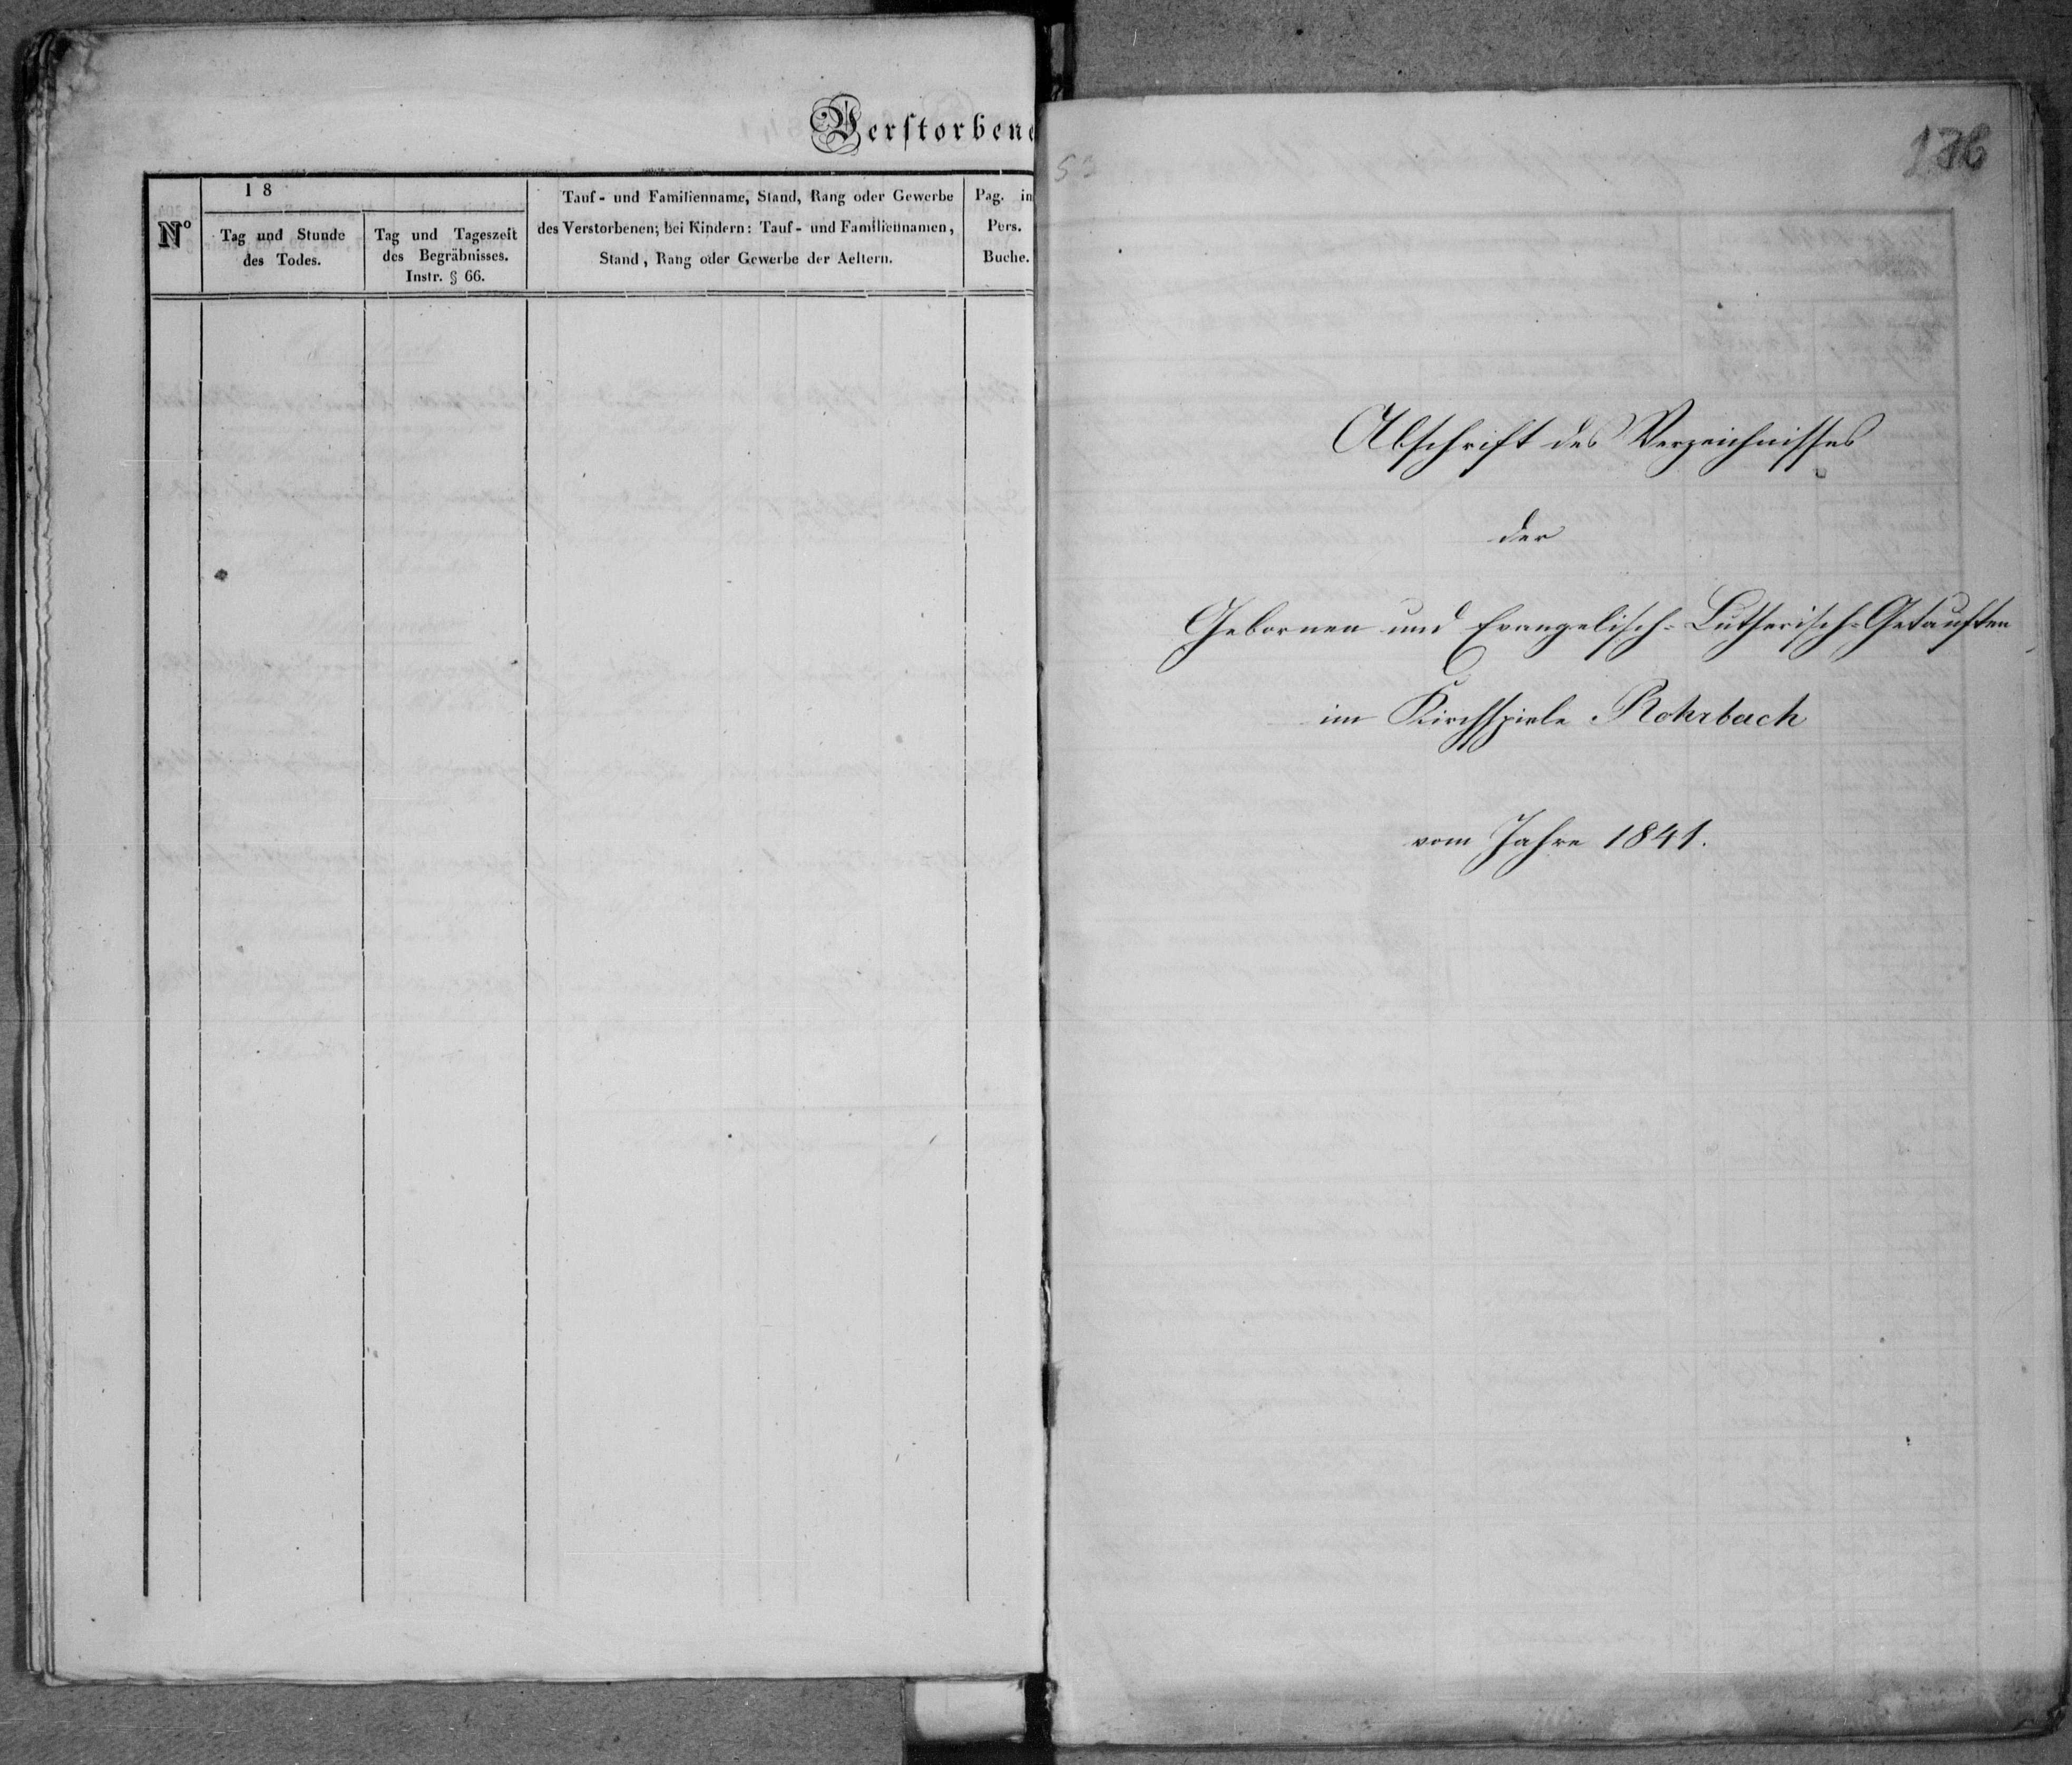 Verstorbene
N°
18
Tag und Stunde
des Todes.
Tag und Tageszeit
des Begräbnisses.
Instr. § 66.
Tauf- und Familienname, Stand, Rang oder Gewerbe
des Verstorbenen; bei Kindern: Tauf- und Familiennamen,
Stand, Rang oder Gewerbe der Aeltern.
Pag. in
Pers.
Buche.
Abschrift des Verzeichnisses
der
Gebornen und Evangelisch-Lutherisch-Getauften
im Kirchspiele Rohrbach
vom Jahre 1841.